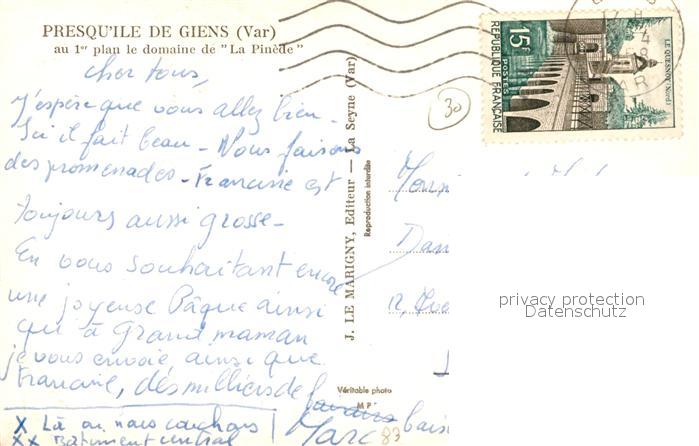 PRESQU'ILE DE GIENS (Var)
au 1er plan le domaine de "La Pinède"
cher tous,
J'espère que vous allez bien -
Ici il fait beau - Nous faisons
des promenades - Francine est
toujours aussi grosse -
En vous souhaitant encore
une joyeuse Pâque ainsi
qu'à Grand maman
je vous envoie ainsi que
Francine, dés milliers de
bais
Marc 83
X Là où nous couchons
XX Bâtiment central
J. LE MARIGNY, Editeur — La Seyne (Var)
Reproduction interdite
Véritable photo
M P
30
15F
POSTES
REPUBLIQUE FRANÇAISE
LE QUESNOY (Nord)
12,
privacy protection
Datenschutz